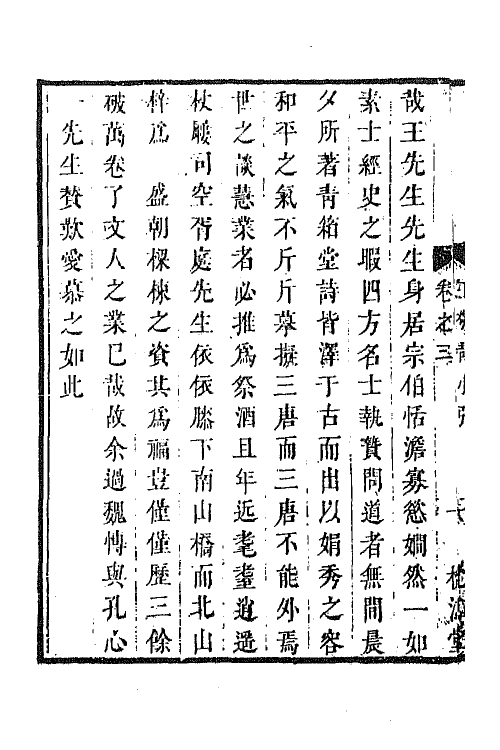 哉王先生先生身居宗伯恬澹寡慾嫺然一如
素士經史之暇四方名士執贄問道者無間晨
夕所著青箱堂詩皆澤于古而出以娟秀之容
和平之氣不斤斤摹擬三唐而三唐不能外焉
世之談慧業者必推爲祭酒且年近耄耋逍遥
杖屨司空胥庭先生依依膝下南山橋而北山
梓爲　盛朝樑棟之資其爲福豈僅僅歷三餘
破萬卷了文人之業已哉故余過魏愽與孔心
一先生贊歎愛慕之如此
卷之三